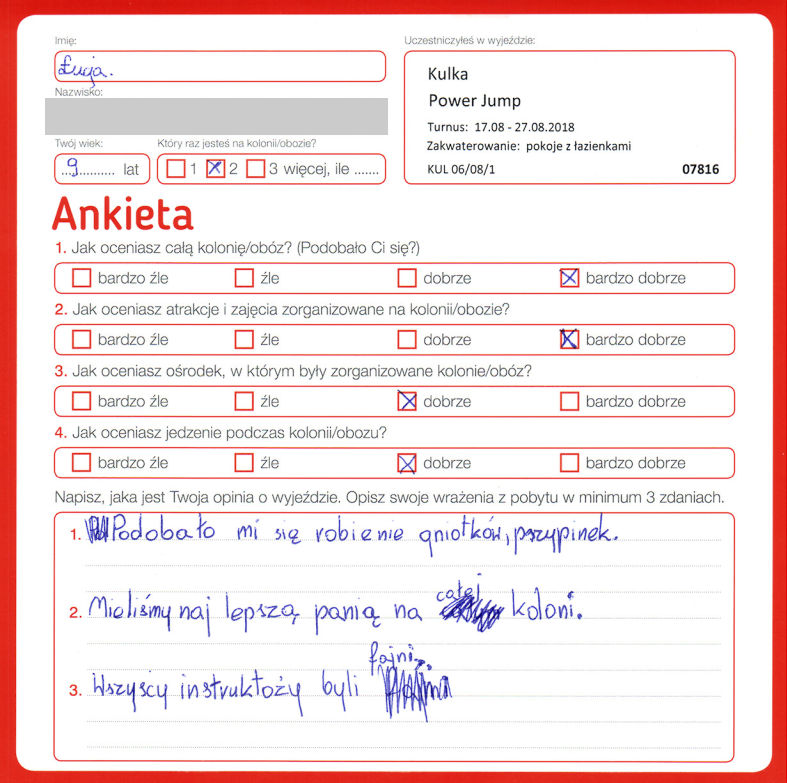 Imię:
Łucja.
Nazwisko:
Twój wiek: Który raz jesteś na kolonii/obozie?
..9.......... lat 1 2 3 więcej, ile .......
Uczestniczyłeś w wyjeździe:
Kulka
Power Jump
Turnus: 17.08 - 27.08.2018
Zakwaterowanie: pokoje z łazienkami
KUL 06/08/1 07816
Ankieta
1. Jak oceniasz całą kolonię/obóz? (Podobało Ci się?)
bardzo źle źle dobrze bardzo dobrze
2. Jak oceniasz atrakcje i zajęcia zorganizowane na kolonii/obozie?
bardzo źle źle dobrze bardzo dobrze
3. Jak oceniasz ośrodek, w którym były zorganizowane kolonie/obóz?
bardzo źle źle dobrze bardzo dobrze
4. Jak oceniasz jedzenie podczas kolonii/obozu?
bardzo źle źle dobrze bardzo dobrze
Napisz, jaka jest Twoja opinia o wyjeździe. Opisz swoje wrażenia z pobytu w minimum 3 zdaniach.
1. Podobało mi się robienie gniotków, przypinek.
2. Mieliśmy naj lepszą panią na całej koloni.
3. Wszyscy instruktoży byli fajni.